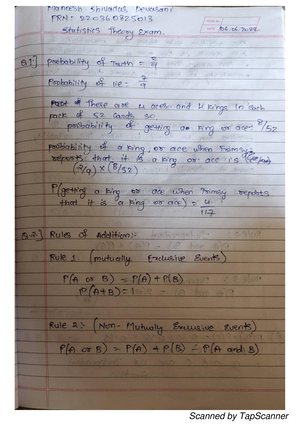 Shivadas Devasani
PRN = 220360325013
06.06.2022
Statistics Theory Exam.
Q.1] Probability of Truth = 2/9
Probability of lie = 7/9
There are 4 aces and 4 kings in each
pack of 52 cards so,
probability of getting a king or ace = 8/52
probability of a king, or ace when
reports that it is a king or ace is
(2/9) × (8/52)
P(getting a king or ace when reports
that it is a king or ace) = 4/117
Q.2] Rules of Addition:-
Rule 1: (mutually Exclusive Events)
P(A or B) = P(A) + P(B)
P(A+B) = 1
Rule 2:- (Non-Mutually Exclusive Events)
P(A or B) = P(A) + P(B) - P(A and B)
Scanned by TapScanner